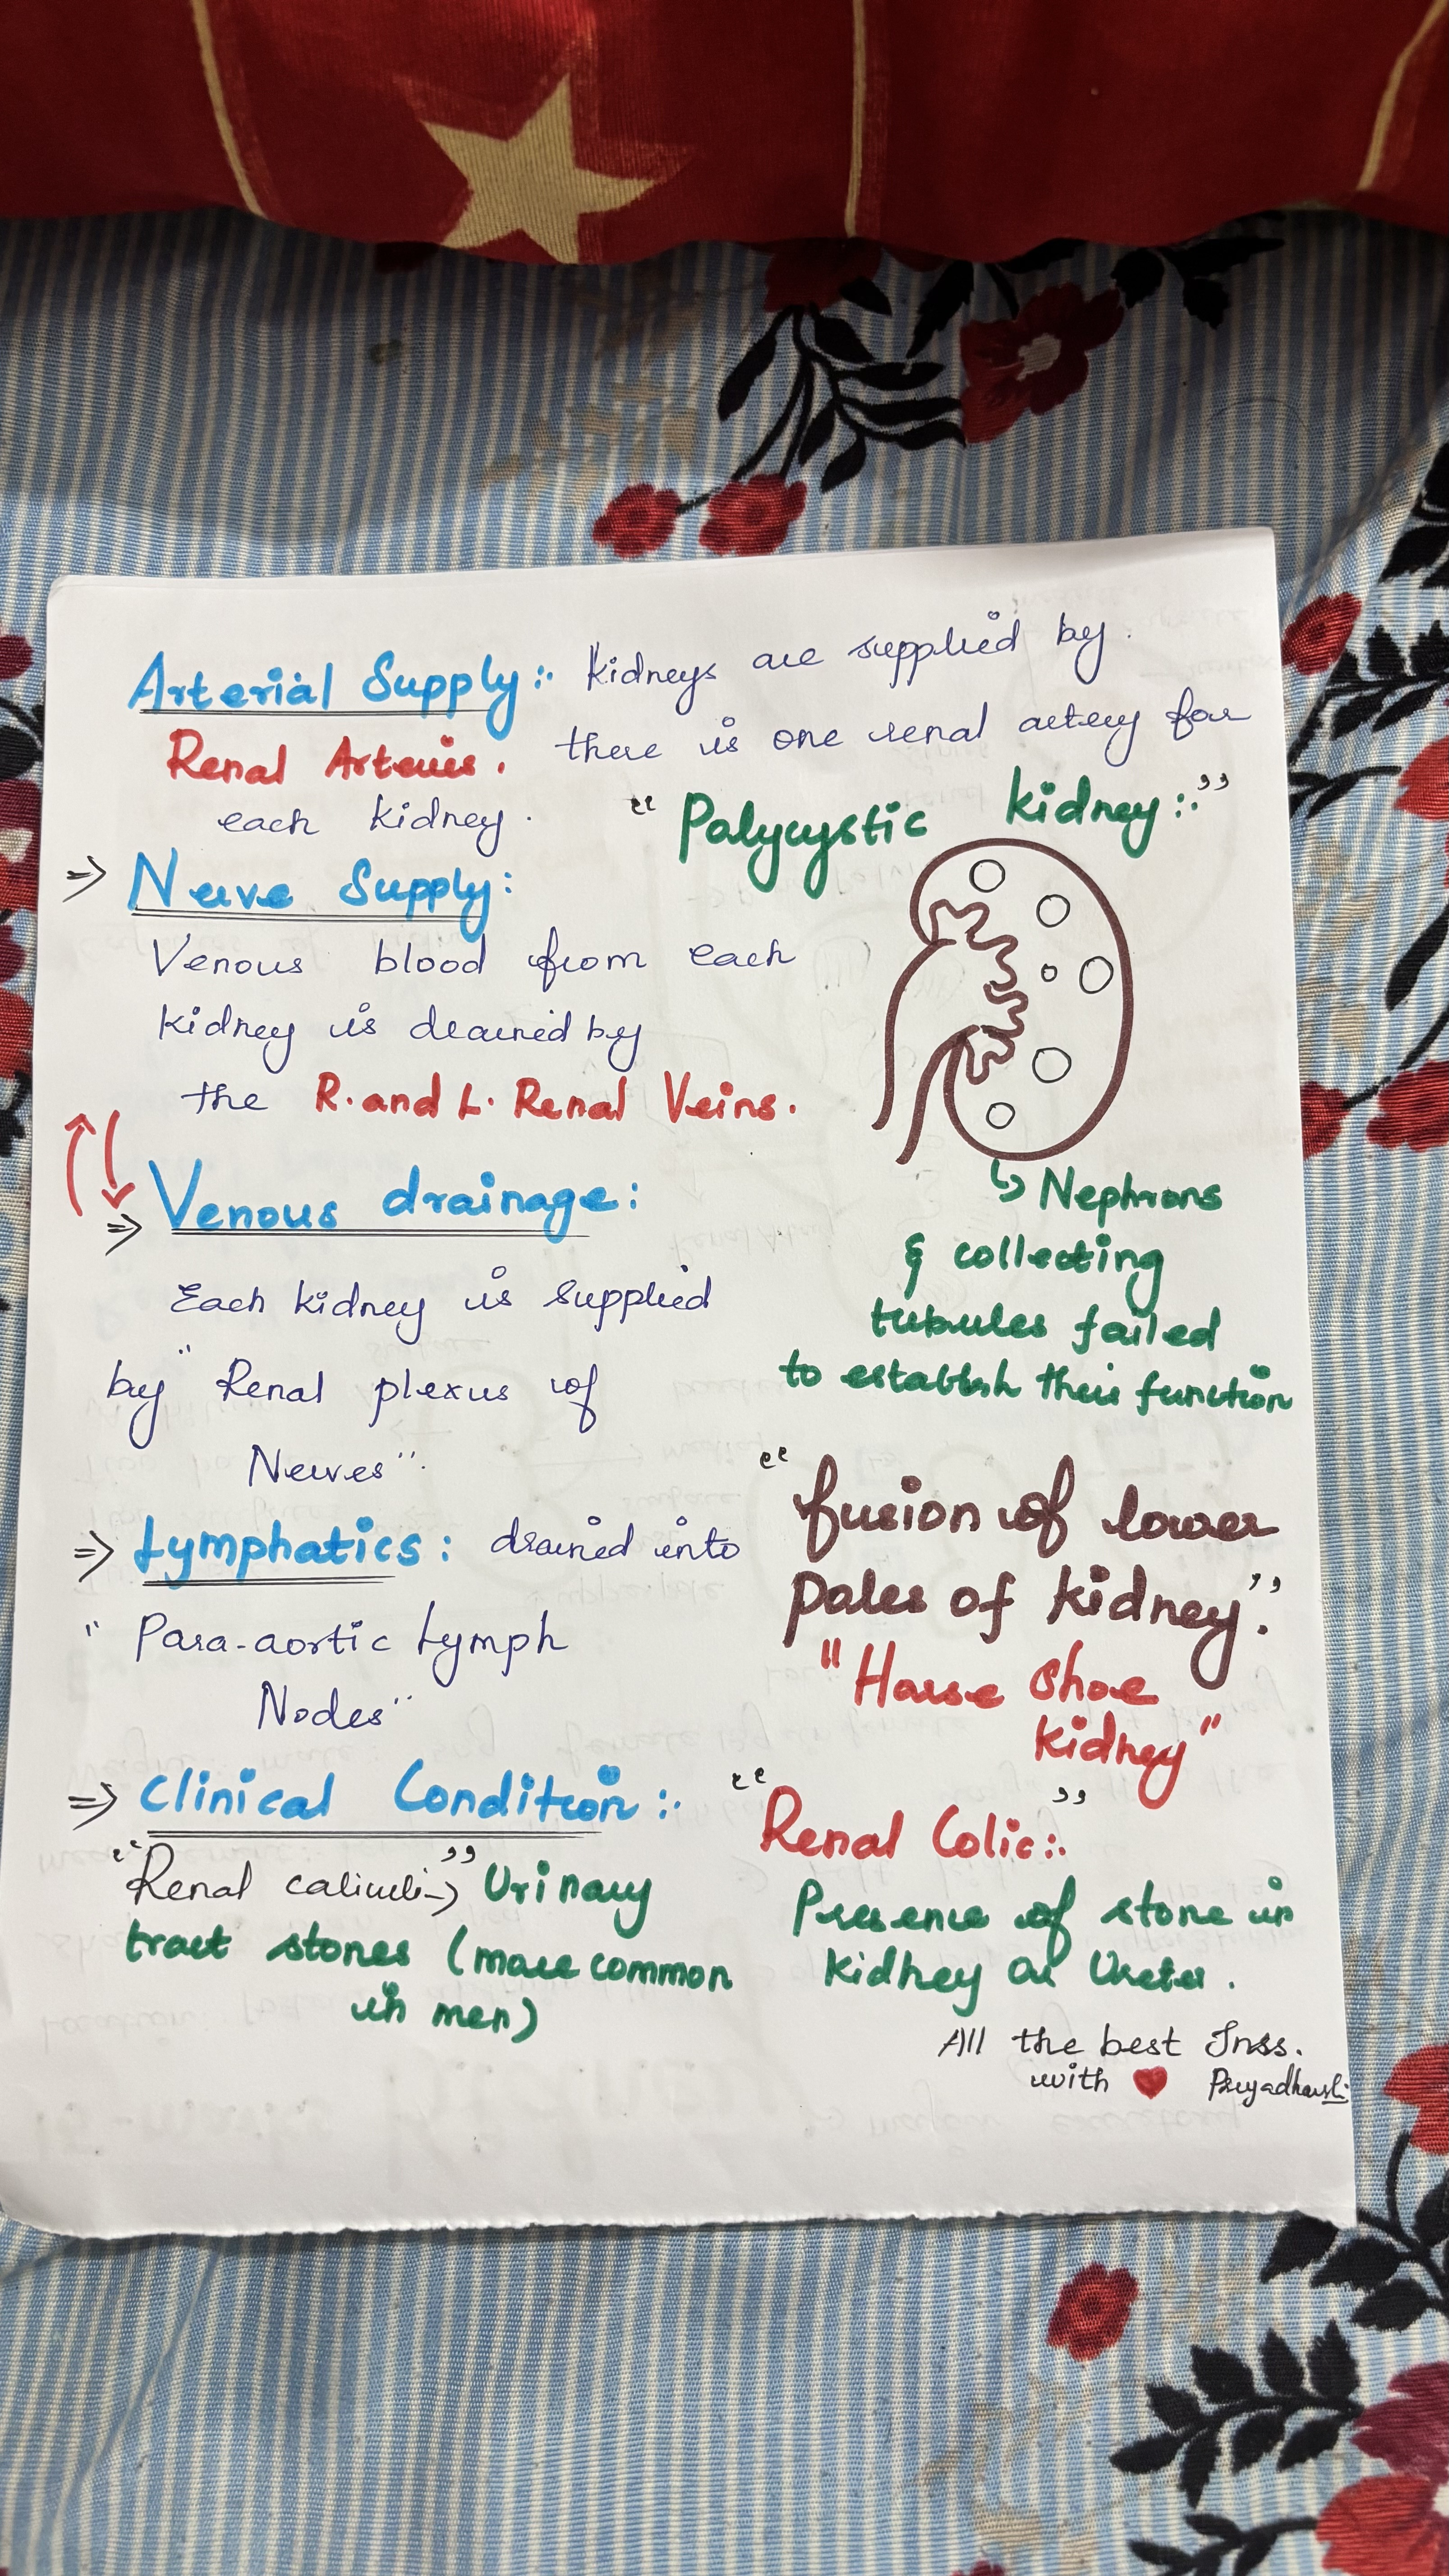 Arterial Supply:. Kidneys are supplied by.
Renal Arteries. there is one renal artery for
each kidney.
"Polycystic kidney:."
⇒ Nerve Supply:
Venous blood from each
kidney is drained by
the R. and L. Renal Veins.
⇒ Venous drainage:
Each kidney is supplied
by "Renal plexus of
Nerves".
⇒ Lymphatics: drained into
"Para-aortic Lymph
Nodes"
⇒ Clinical Condition:.
"Renal caliculi→" Urinary
tract stones (more common
in men)
↳ Nephrons
& collecting
tubules failed
to establish their function
"fusion of lower
poles of kidney".
"Horse Shoe
kidney"
"Renal Colic:."
Presence of stone in
kidney or Ureter.
All the best Inss.
with ❤ Priyadharshi